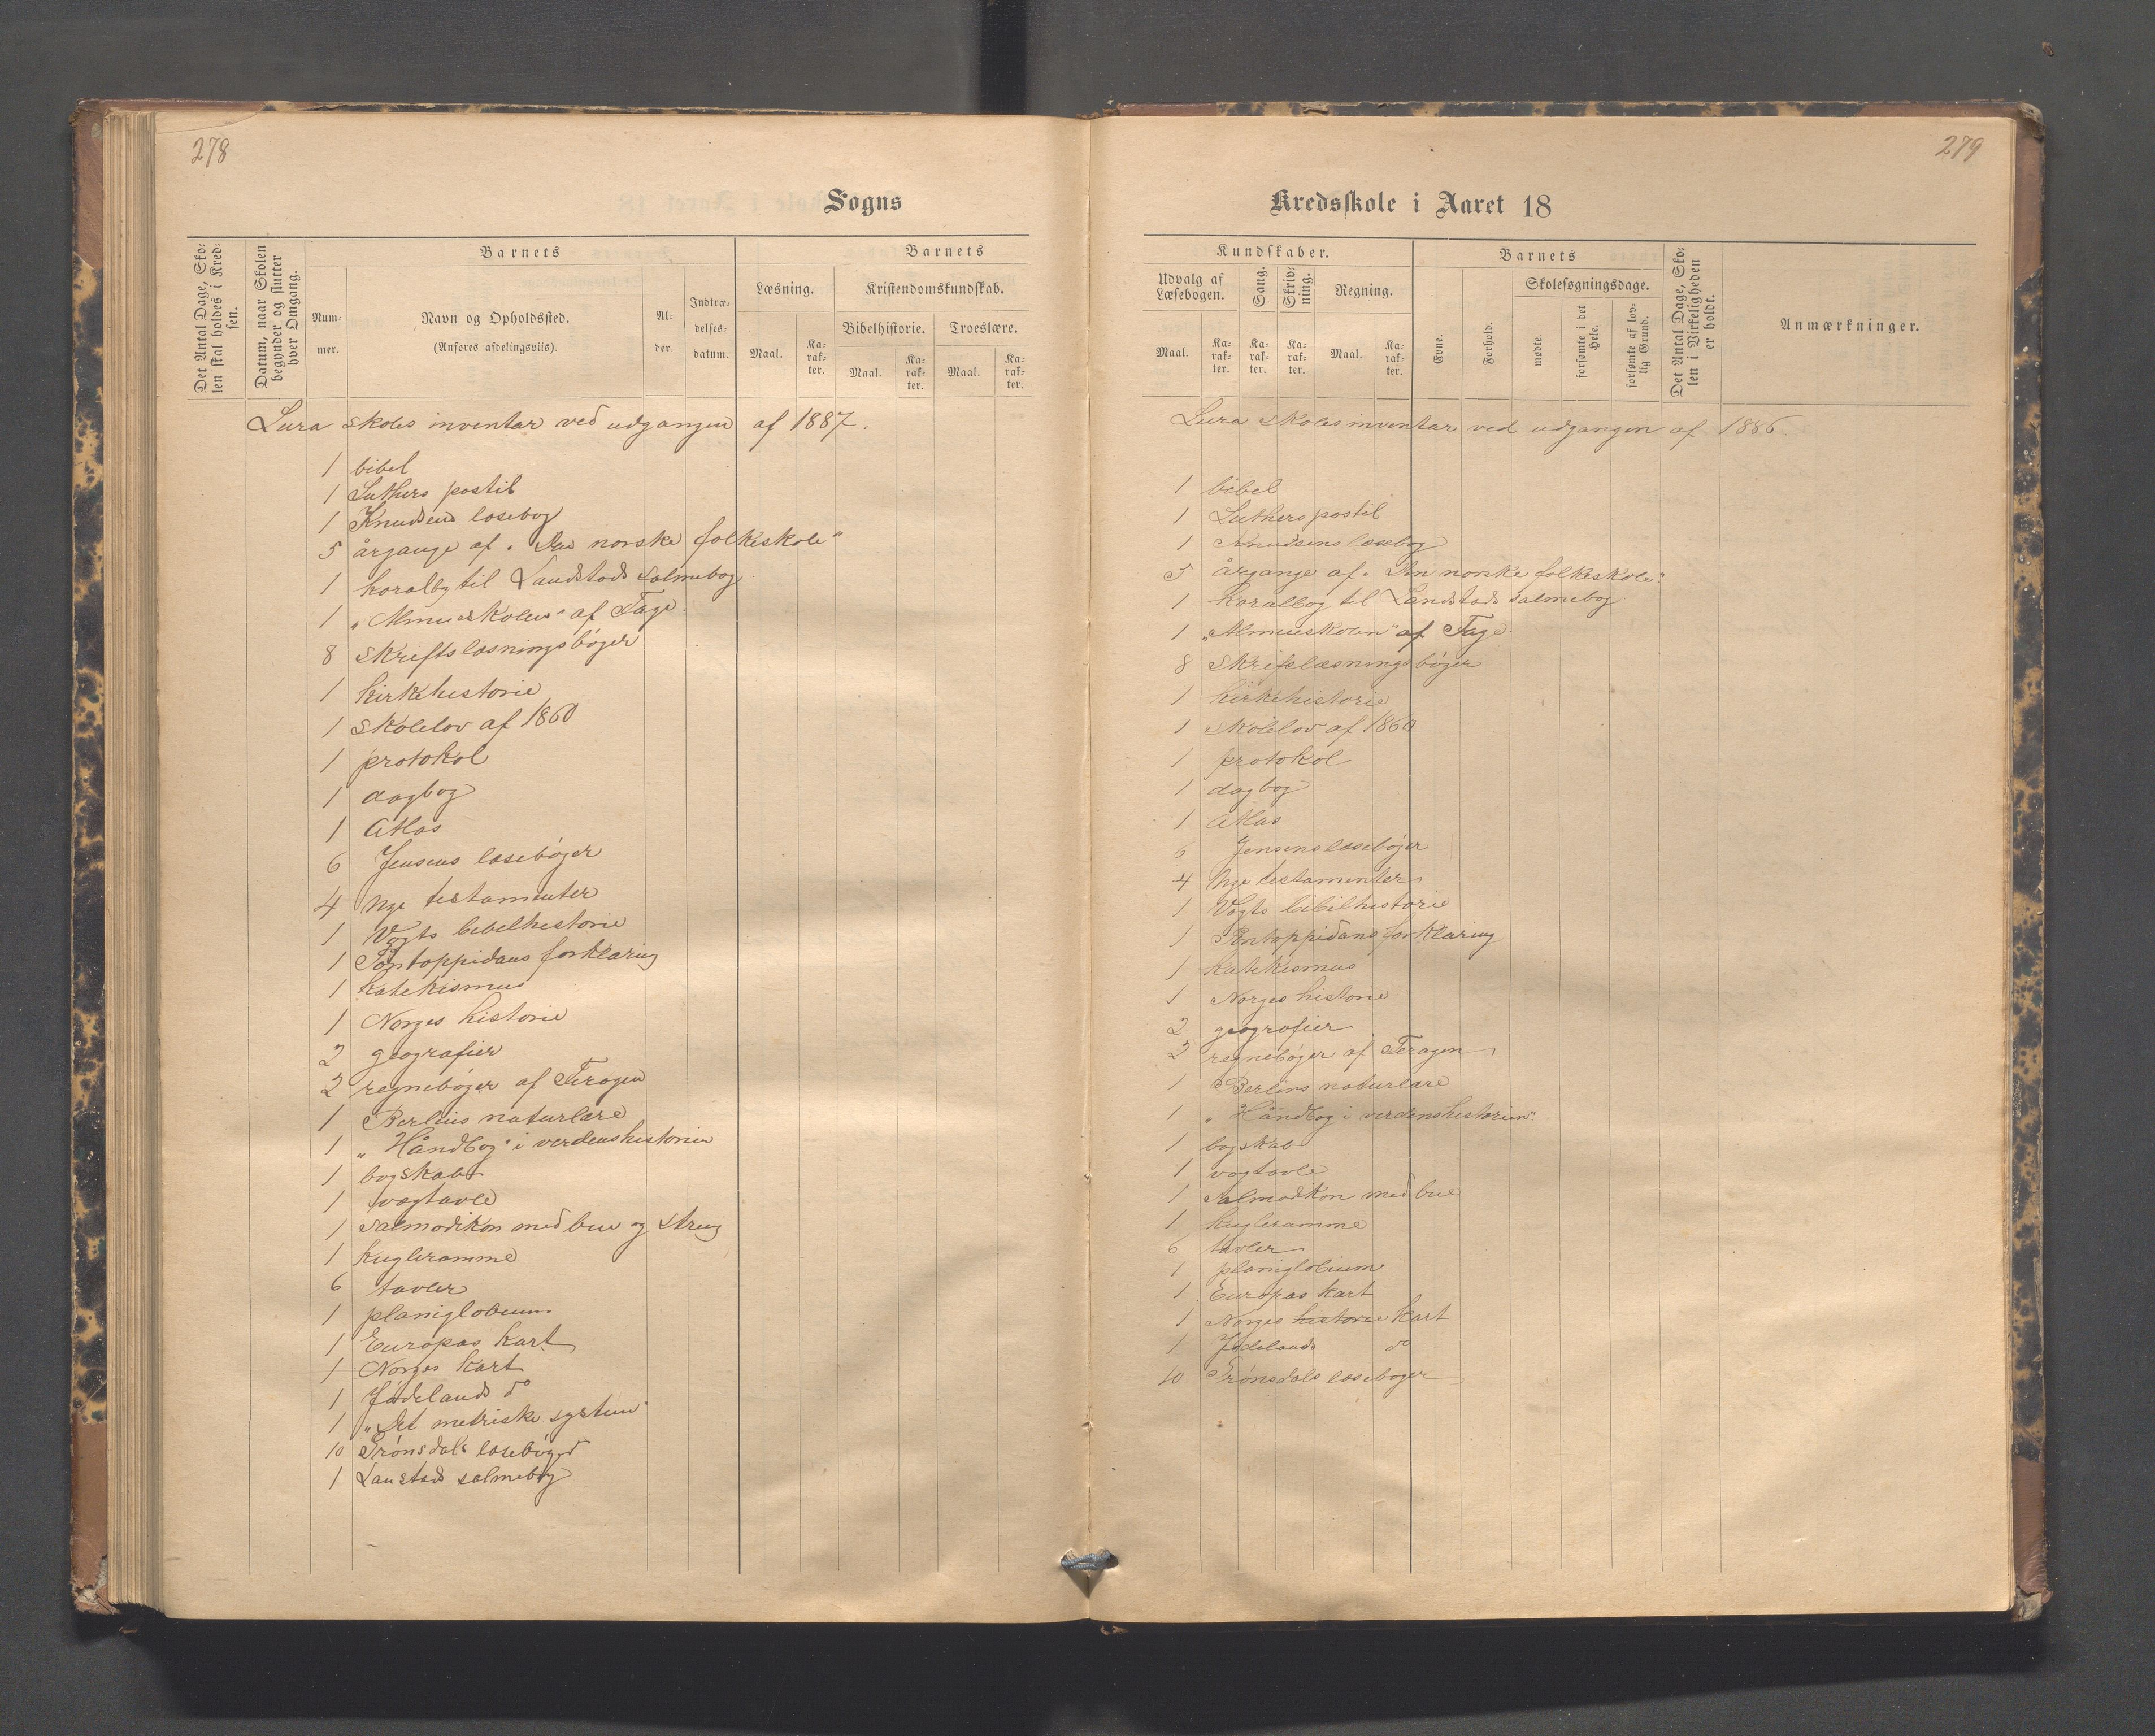 278
Sogns
Det Antal Dage, Sko-
len skal holdes i Kred-
sen.
Datum, naar Skolen
begynder og slutter
hver Omgang.
Barnets
Num-
mer.
Navn og Opholdssted.
(Anføres afdelingsviis).
Al-
der.
Indtræ-
delses-
datum.
Barnets
Læsning.
Kristendomskundskab.
Bibelhistorie.
Troeslære.
Maal.
Ka-
rak-
ter.
Maal.
Ka-
rak-
ter.
Maal.
Ka-
rak-
ter.
Lura skoles inventar ved udgangen af 1887.
1 bibel
1 Luthers postil
1 Knudsens læsebog
5 årgange af „Den norske folkeskole“
1 koralbog til Landstads salmebog
1 „Almueskolen“ af Tage.
8 skriftslæsningsbøger
1 kirkehistorie
1 skolelov af 1860
1 protokol
1 dagbog
1 Atlas
6 Jensens læsebøger
4 nye testamenter
1 Vogts bibelhistorie
1 Pontoppidans forklaring
1 katekismus
1 Norges historie
2 geografier
2 regnebøger af Feragen
1 Berlins naturlære
1 „Håndbog“ i verdenshistorien
1 bogskab
1 vægtavle
1 salmodikon med bue og streng
1 kugleramme
6 tavler
1 planiglobium
1 Europas kart
1 Norges kart
1 Jødelands do
1 „Det metriske system“
10 Trønsdals læsebøger
1 Lanstads salmebog
279
Kredsskole i Aaret 18
Kundskaber.
Udvalg af
Læsebogen.
Sang.
Skriv-
ning.
Regning.
Maal.
Ka-
rak-
ter.
Ka-
rak-
ter.
Ka-
rak-
ter.
Maal.
Ka-
rak-
ter.
Barnets
Evne.
Forhold.
Skolesøgningsdage.
mødte.
forsømte i det
Hele.
forsømte af lov-
lig Grund.
Det Antal Dage, Sko-
len i Virkeligheden
er holdt.
Anmærkninger.
Lura skoles inventar ved udgangen af 1886
1 bibel
1 Luthers postil
1 Knudsens læsebog
5 årgange af „Den norske folkeskole“
1 koralbog til Landstads salmebog
1 „Almueskolen“ af Tage.
8 skriftslæsningsbøger
1 kirkehistorie
1 skolelov af 1860
1 protokol
1 dagbog
1 Atlas
6 Jensens læsebøger
4 nye testamenter
1 Vogts bibelhistorie
1 Pontoppidans forklaring
1 katekismus
1 Norges historie
2 geografier
2 regnebøger af Feragen
1 Berlins naturlære
1 „Håndbog i verdenshistorien“
1 bogskab
1 vægtavle
1 salmodikon med bue
1 kugleramme
6 tavler
1 planiglobium
1 Europas kart
1 Norges historie kart
1 Jødelands do
10 Trønsdals læsebøger